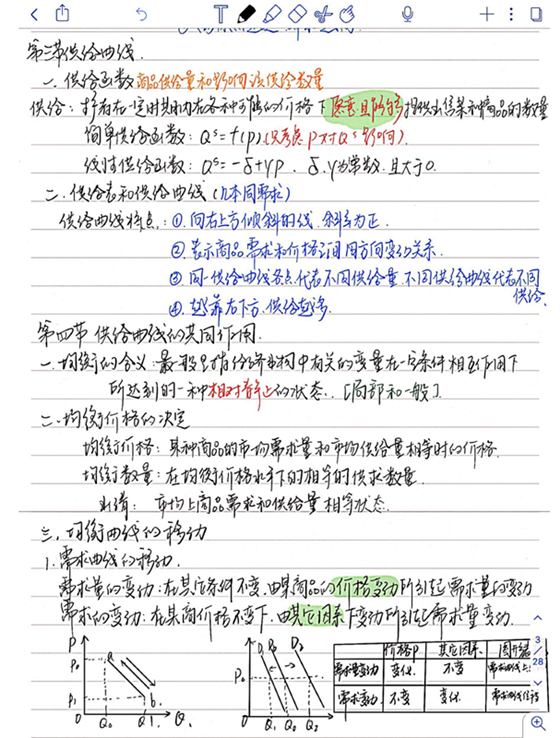 第三节 供给曲线.
一. 供给函数 商品供给量和影响该供给数量
供给: 生产者在一定时期内在各种可能的价格下愿意且能够提供出售某种商品的数量
简单供给函数: Qˢ=f(P) (只考虑P对Qˢ影响).
线性供给函数: Qˢ=-δ+γP. δ.γ为常数. 且大于0.
二. 供给表和供给曲线 (几本同需求)
供给曲线特点: ①. 向右上方倾斜的线. 斜率为正.
②. 表示商品需求和价格之间同方向变动关系.
③ 同一供给曲线各点代表不同供给量. 不同供给曲线代表不同
供给.
④. 越靠右下方. 供给越多.
第四节 供给曲线的共同作用.
一. 均衡的含义: 最一般是指经济事物中有关的变量在一定条件相互作用下
所达到的一种相对静止的状态. [局部和一般].
二. 均衡价格的决定
均衡价格: 某种商品的市场需求量和市场供给量相等时的价格.
均衡数量: 在均衡价格水平下的相等的供求数量.
出清: 市场上商品需求和供给量相等状态.
三. 均衡曲线的移动
1. 需求曲线的移动.
需求量的变动: 在其它条件不变. 由某商品的价格变动所引起需求量的变动
需求的变动: 在某商价格不变下. 由其它因素下变动所引起需求量变动.
P P₀ P₁ a b Q₀ Q₁ Q.
P₀ D₁ D₀ D₂ Q₁ Q₀ Q₂
价格P 其它因素.
需求量变动 变化. 不变
需求变动 不变 变化.
3
/
28